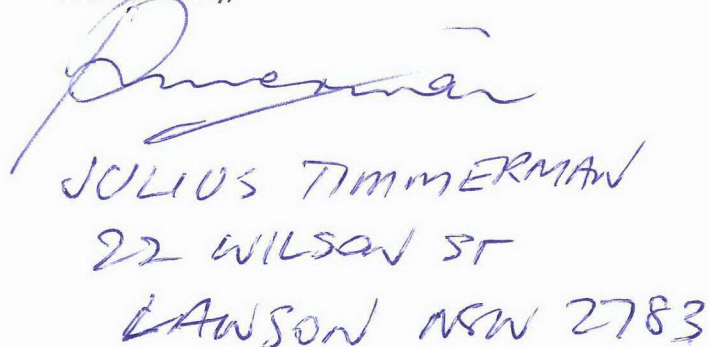 JULIUS TIMMERMAN
22 WILSON ST
LAWSON NSW 2783